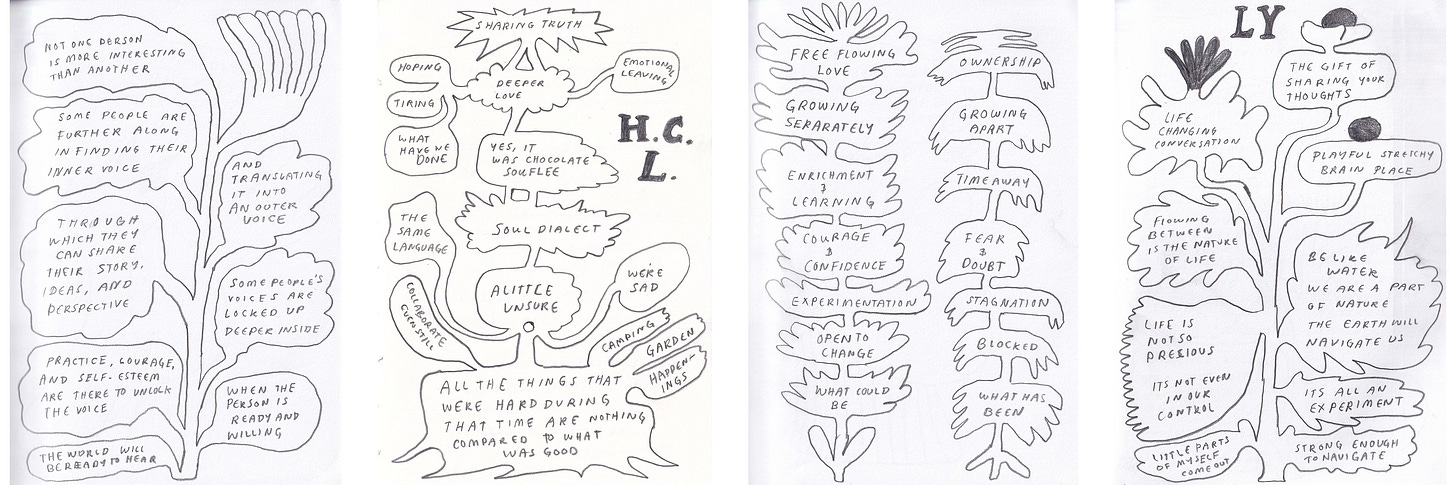 NOT ONE PERSON
IS MORE INTERESTING
THAN ANOTHER
SOME PEOPLE ARE
FURTHER ALONG
IN FINDING THEIR
INNER VOICE
AND
TRANSLATING
IT INTO
AN OUTER
VOICE
THROUGH
WHICH THEY
CAN SHARE
THEIR STORY,
IDEAS, AND
PERSPECTIVE
SOME PEOPLE'S
VOICES ARE
LOCKED UP
DEEPER INSIDE
PRACTICE, COURAGE,
AND SELF-ESTEEM
ARE THERE TO UNLOCK
THE VOICE
WHEN THE
PERSON IS
READY AND
WILLING
THE WORLD WILL
BE READY TO HEAR
SHARING TRUTH
HOPING
TIRING
WHAT
HAVE WE
DONE
DEEPER
LOVE
EMOTIONAL
LEAVING
H.C.
L.
YES, IT
WAS CHOCOLATE
SOUFLEE
SOUL DIALECT
THE
SAME
LANGUAGE
A LITTLE
UNSURE
WE'RE
SAD
COLLABORATE
EVEN STILL
CAMPING
GARDEN
HAPPEN-
INGS
ALL THE THINGS THAT
WERE HARD DURING
THAT TIME ARE NOTHING
COMPARED TO WHAT
WAS GOOD
FREE FLOWING
LOVE
GROWING
SEPARATELY
ENRICHMENT
&
LEARNING
COURAGE
&
CONFIDENCE
EXPERIMENTATION
OPEN TO
CHANGE
WHAT COULD
BE
OWNERSHIP
GROWING
APART
TIME AWAY
FEAR
&
DOUBT
STAGNATION
BLOCKED
WHAT HAS
BEEN
LY
THE GIFT OF
SHARING YOUR
THOUGHTS
LIFE
CHANGING
CONVERSATION
PLAYFUL STRETCHY
BRAIN PLACE
FLOWING
BETWEEN
IS THE NATURE
OF LIFE
BE LIKE
WATER
WE ARE A PART
OF NATURE
THE EARTH WILL
NAVIGATE US
LIFE IS
NOT SO
PRECIOUS
ITS NOT EVEN
IN OUR
CONTROL
ITS ALL AN
EXPERIMENT
LITTLE PARTS
OF MYSELF
COME OUT
STRONG ENOUGH
TO NAVIGATE